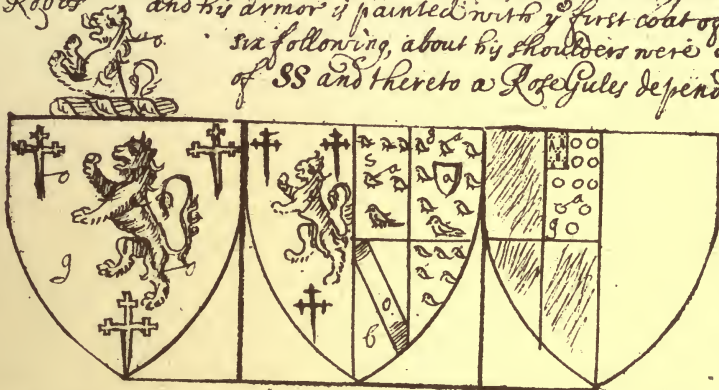 and his armor is painted with yͤ first coat of
six following, about his shoulders were
of SS and thereto a Rose Gules depend
o
o g o
S a g a a
b o
a g